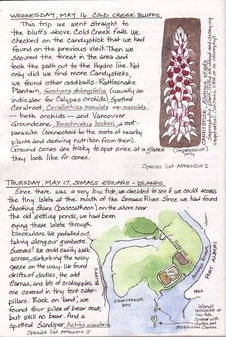 WEDNESDAY, MAY 16 COLD CREEK BLUFFS,
This trip we went straight to
the bluffs above Cold Creek Falls. We
checked on the candystick that we had
found on the previous visit. Then we
scoured the forest in the area and
took the path out to the Hydro line. Not
only did we find more Candysticks,
we found other oddballs: Rattlesnake
Plantain, Goodyera oblongifolia (usually an
indicator for Calypso orchids), Spotted
Coralroot,
— both orchids — and Vancouver
Groundcone, Boschniakia hookeri, a root-
parasite (connected to the roots of nearby
plants and deriving nutrition from them).
Ground cones are frisky to spot since at a glance
they look like fir cones.
Species list APPENDIX I
THURSDAY, MAY 17, SOMASS ESTUARY - ISLANDS
Since there was a very low tide, we decided to see if we could access
the tiny islets at the mouth of the Somass River. Since we had found
Shooting Stars (Dodecatheon) on the shore near
the old settling ponds, we had been
eyeing those islets through
binoculars. We pedalled out,
taking along our gumboots.
Success! We could easily walk
across, disturbing the noisy
geese on the way. We found
drifts of sedges, the odd
Camas, and lots of crabapples, all
covered in tiny tent cater-
pillars. Back on land, we
found four piles of bear scat,
but still no bear. And a
Spotted Sandpiper Actitis macularia
Species list APPENDIX J
PORT ALBERNI
MILL